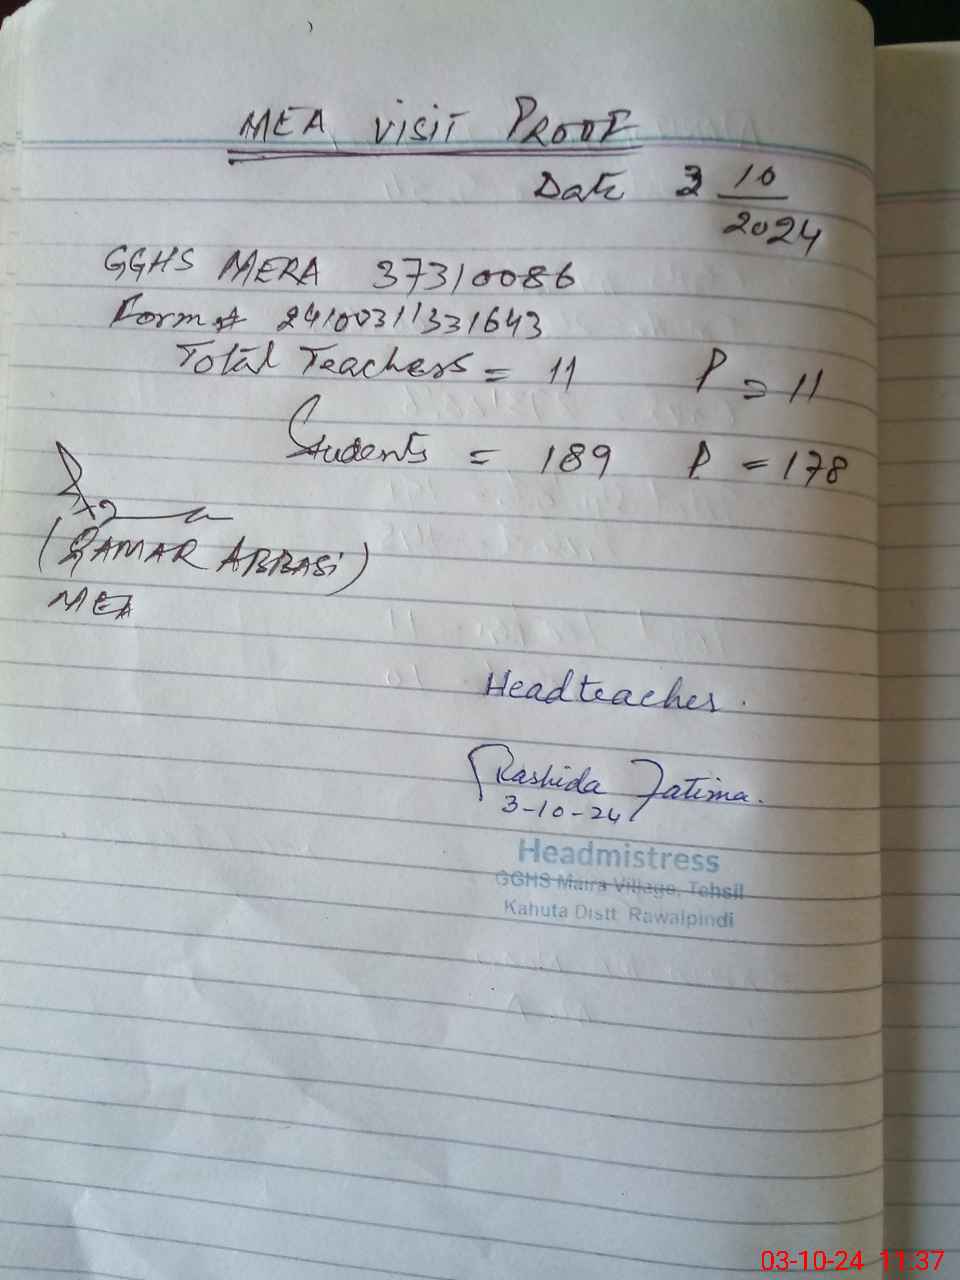 MEA VISIT PROOF
Date 3 10
2024
GGHS MERA 37310086
Form # 24100311331643
Total Teachers = 11 P = 11
Students = 189 P = 178
(QAMAR ABBASI)
MEA
Headteacher.
Rashida Fatima.
3-10-24
Headmistress
GGHS Maira Village, Tehsil
Kahuta Distt. Rawalpindi
03-10-24 11:37